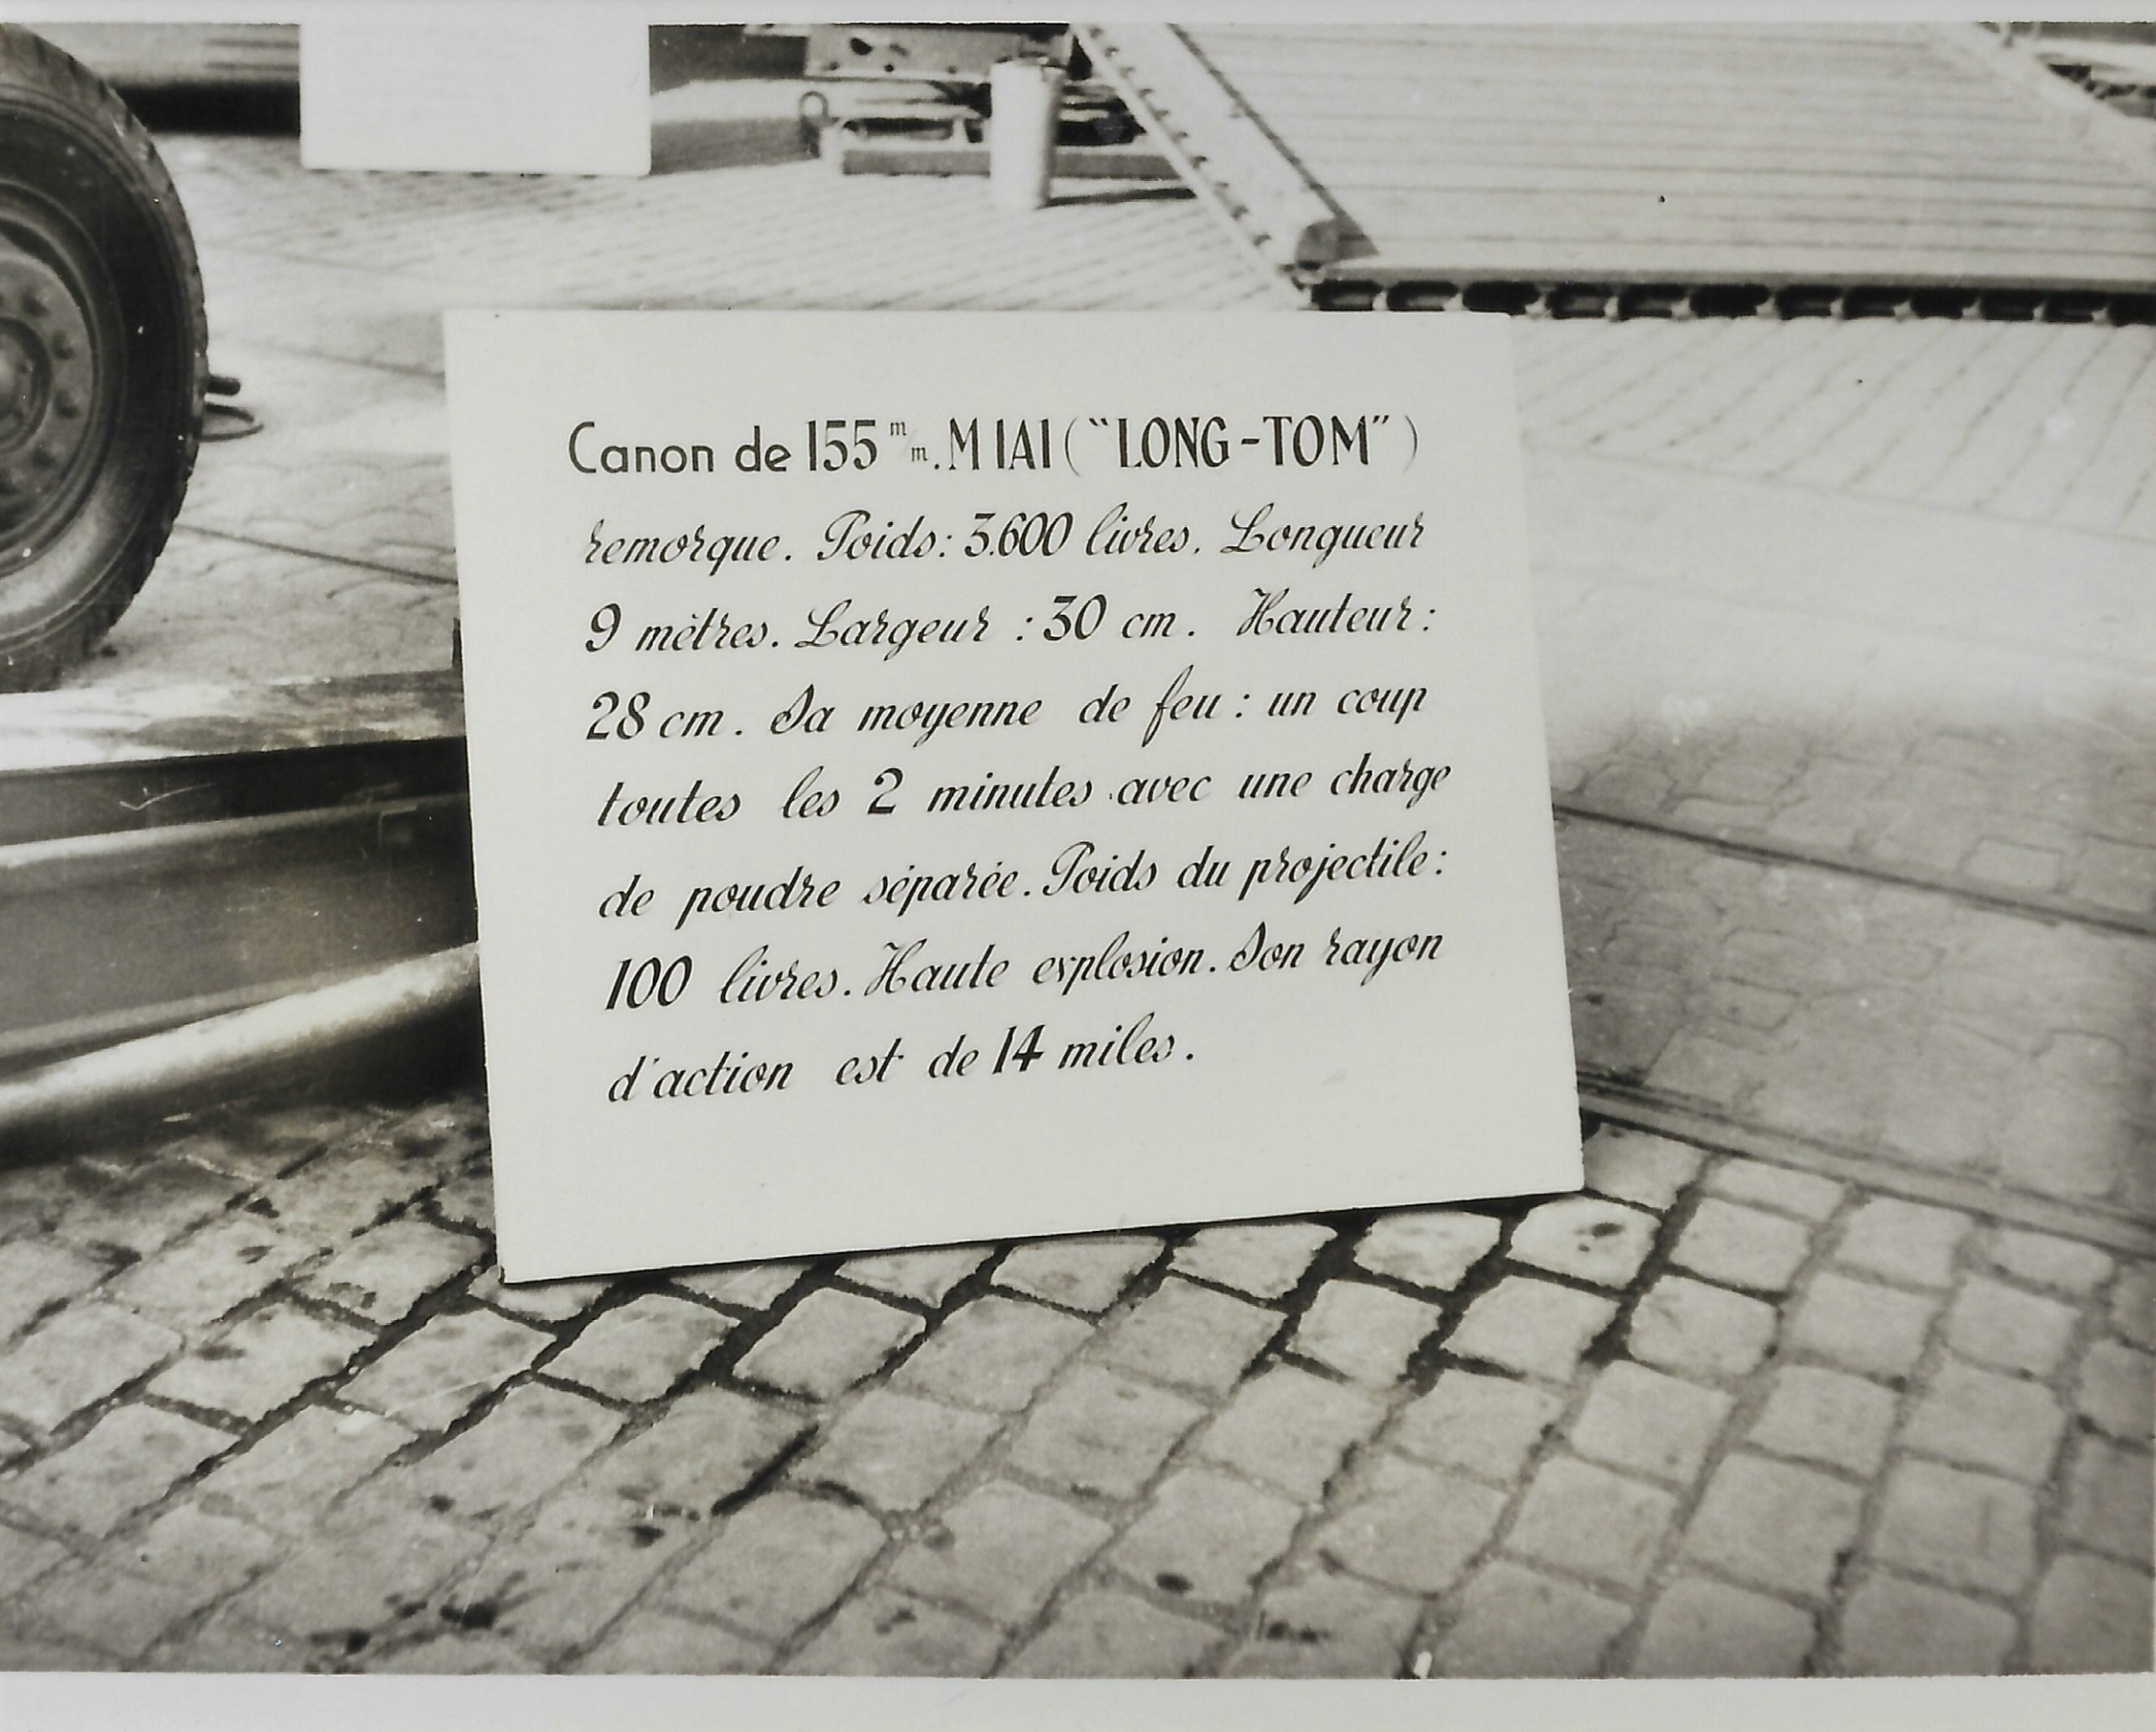 Canon de 155 mm. M1A1 ("LONG-TOM")
remorque. Poids: 3.600 livres. Longueur
9 mètres. Largeur : 30 cm. Hauteur:
28 cm. Sa moyenne de feu: un coup
toutes les 2 minutes avec une charge
de poudre séparée. Poids du projectile:
100 livres. Haute explosion. Son rayon
d'action est de 14 miles.